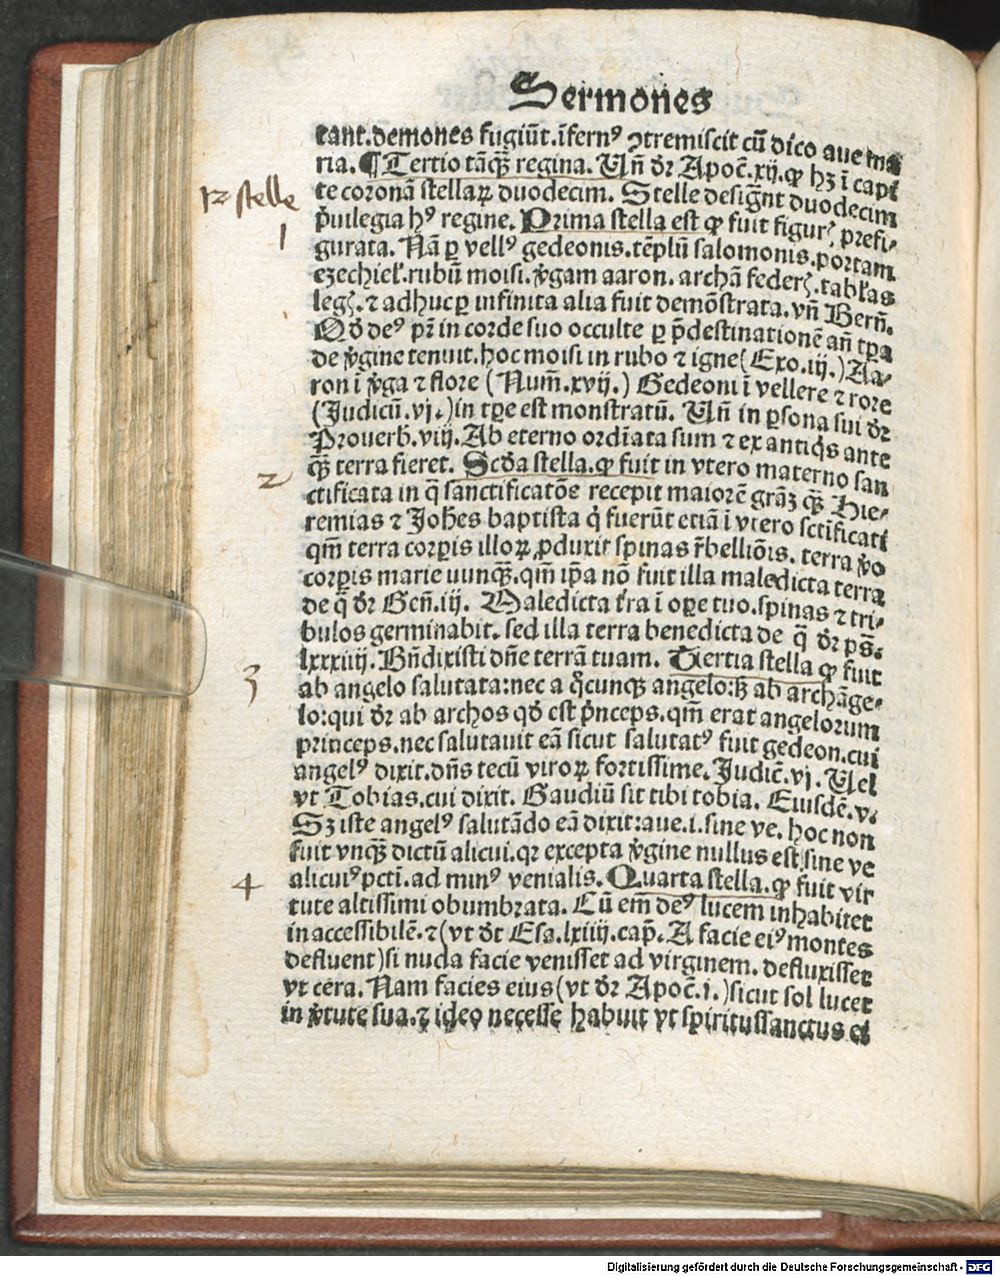 Sermones
tant.demones fugiūt.īfernꝰ ꝯtremiscit cū dico aue ma
ria. ¶ Tertio tāqꝫ regina. Vñ dr̄ Apoc̄.xij. ꝙ hꝫ ī capi
te coronā stellaꝝ duodecim. Stelle designt̄ duodecim
12 stelle
p̄uilegia hꝰ regine. Prima stella est ꝙ fuit figur̄ prefi⸗
1
gurata. Nā ꝑ vellꝰ gedeonis.tēplū salomonis.portam
ezechiel̄.rubū moisi.v̄gam aaron. archā feder̄.tabl̄as
leḡ. ⁊ adhuc ꝑ infinita alia fuit demōstrata. vñ Bern̄.
Qd̄ deꝰ pr̄ in corde suo occulte ꝑ p̄destinationē añ tꝑa
de v̄gine tenuit. hoc moisi in rubo ⁊ igne (Exo.iij.) Aa⸗
ron ī v̄ga ⁊ flore (Num̄.xvij.) Gedeoni ī vellere ⁊ rore
(Judicū.vj.) in tꝑe est monstratū. Vñ in ꝑsona sui dr̄
Prouerb̄.viij. Ab eterno ordīata sum ⁊ ex antiqͥs ante
qꝫ terra fieret. Scd̄a stella. ꝙ fuit in vtero materno san
2
ctificata in q̄ sanctificatōe recepit maiorē grāꝫ qꝫ Hie⸗
remias ⁊ Joh̄es baptista qͥ fuerūt etiā ī vtero sctificati
qm̄ terra corꝑis illoꝝ ꝓduxit spinas r̄belliōis. terra v̄o
corꝑis marie nunqꝫ. qm̄ ip̄a nō fuit illa maledicta terra
de q̄ dr̄ Gen̄.iij. Maledicta t̄ra ī oꝑe tuo.spinas ⁊ tri⸗
bulos germinabit. sed illa terra benedicta de q̄ dr̄ ps̄.
lxxxiiij. Bn̄dixisti dn̄e terrā tuam. Tertia stella ꝙ fuit
3
ab angelo salutata: nec a qͥcunqꝫ angelo: sꝫ ab archāge⸗
lo: qui dr̄ ab archos qd̄ est p̄nceps. qm̄ erat angelorum
princeps. nec salutauit eā sicut salutatꝰ fuit gedeon. cui
angelꝰ dixit. dn̄s tecū viroꝝ fortissime. Judic̄.vj. Vel
vt Tobias. cui dixit. Gaudiū sit tibi tobia. Eiusdē.v.
Sꝫ iste angelꝰ salutādo eā dixit: aue.i.sine ve. hoc non
fuit vnqꝫ dictū alicui. qꝛ excepta v̄gine nullus est sine ve
alicuiꝰ pcti. ad minꝰ venialis. Quarta stella. ꝙ fuit vir
4
tute altissimi obumbrata. Cū em̄ deꝰ lucem inhabitet
inaccessibilē. ⁊ (vt dr̄ Esa.lxiiij.cap̄. A facie eiꝰ montes
defluent) si nuda facie venisset ad virginem. defluxisset
vt cera. Nam facies eius (vt dr̄ Apoc̄.i.) sicut sol lucet
in v̄tute sua. ⁊ ideo necesse habuit vt spiritussanctus ei
Digitalisierung gefördert durch die Deutsche Forschungsgemeinschaft - DFG